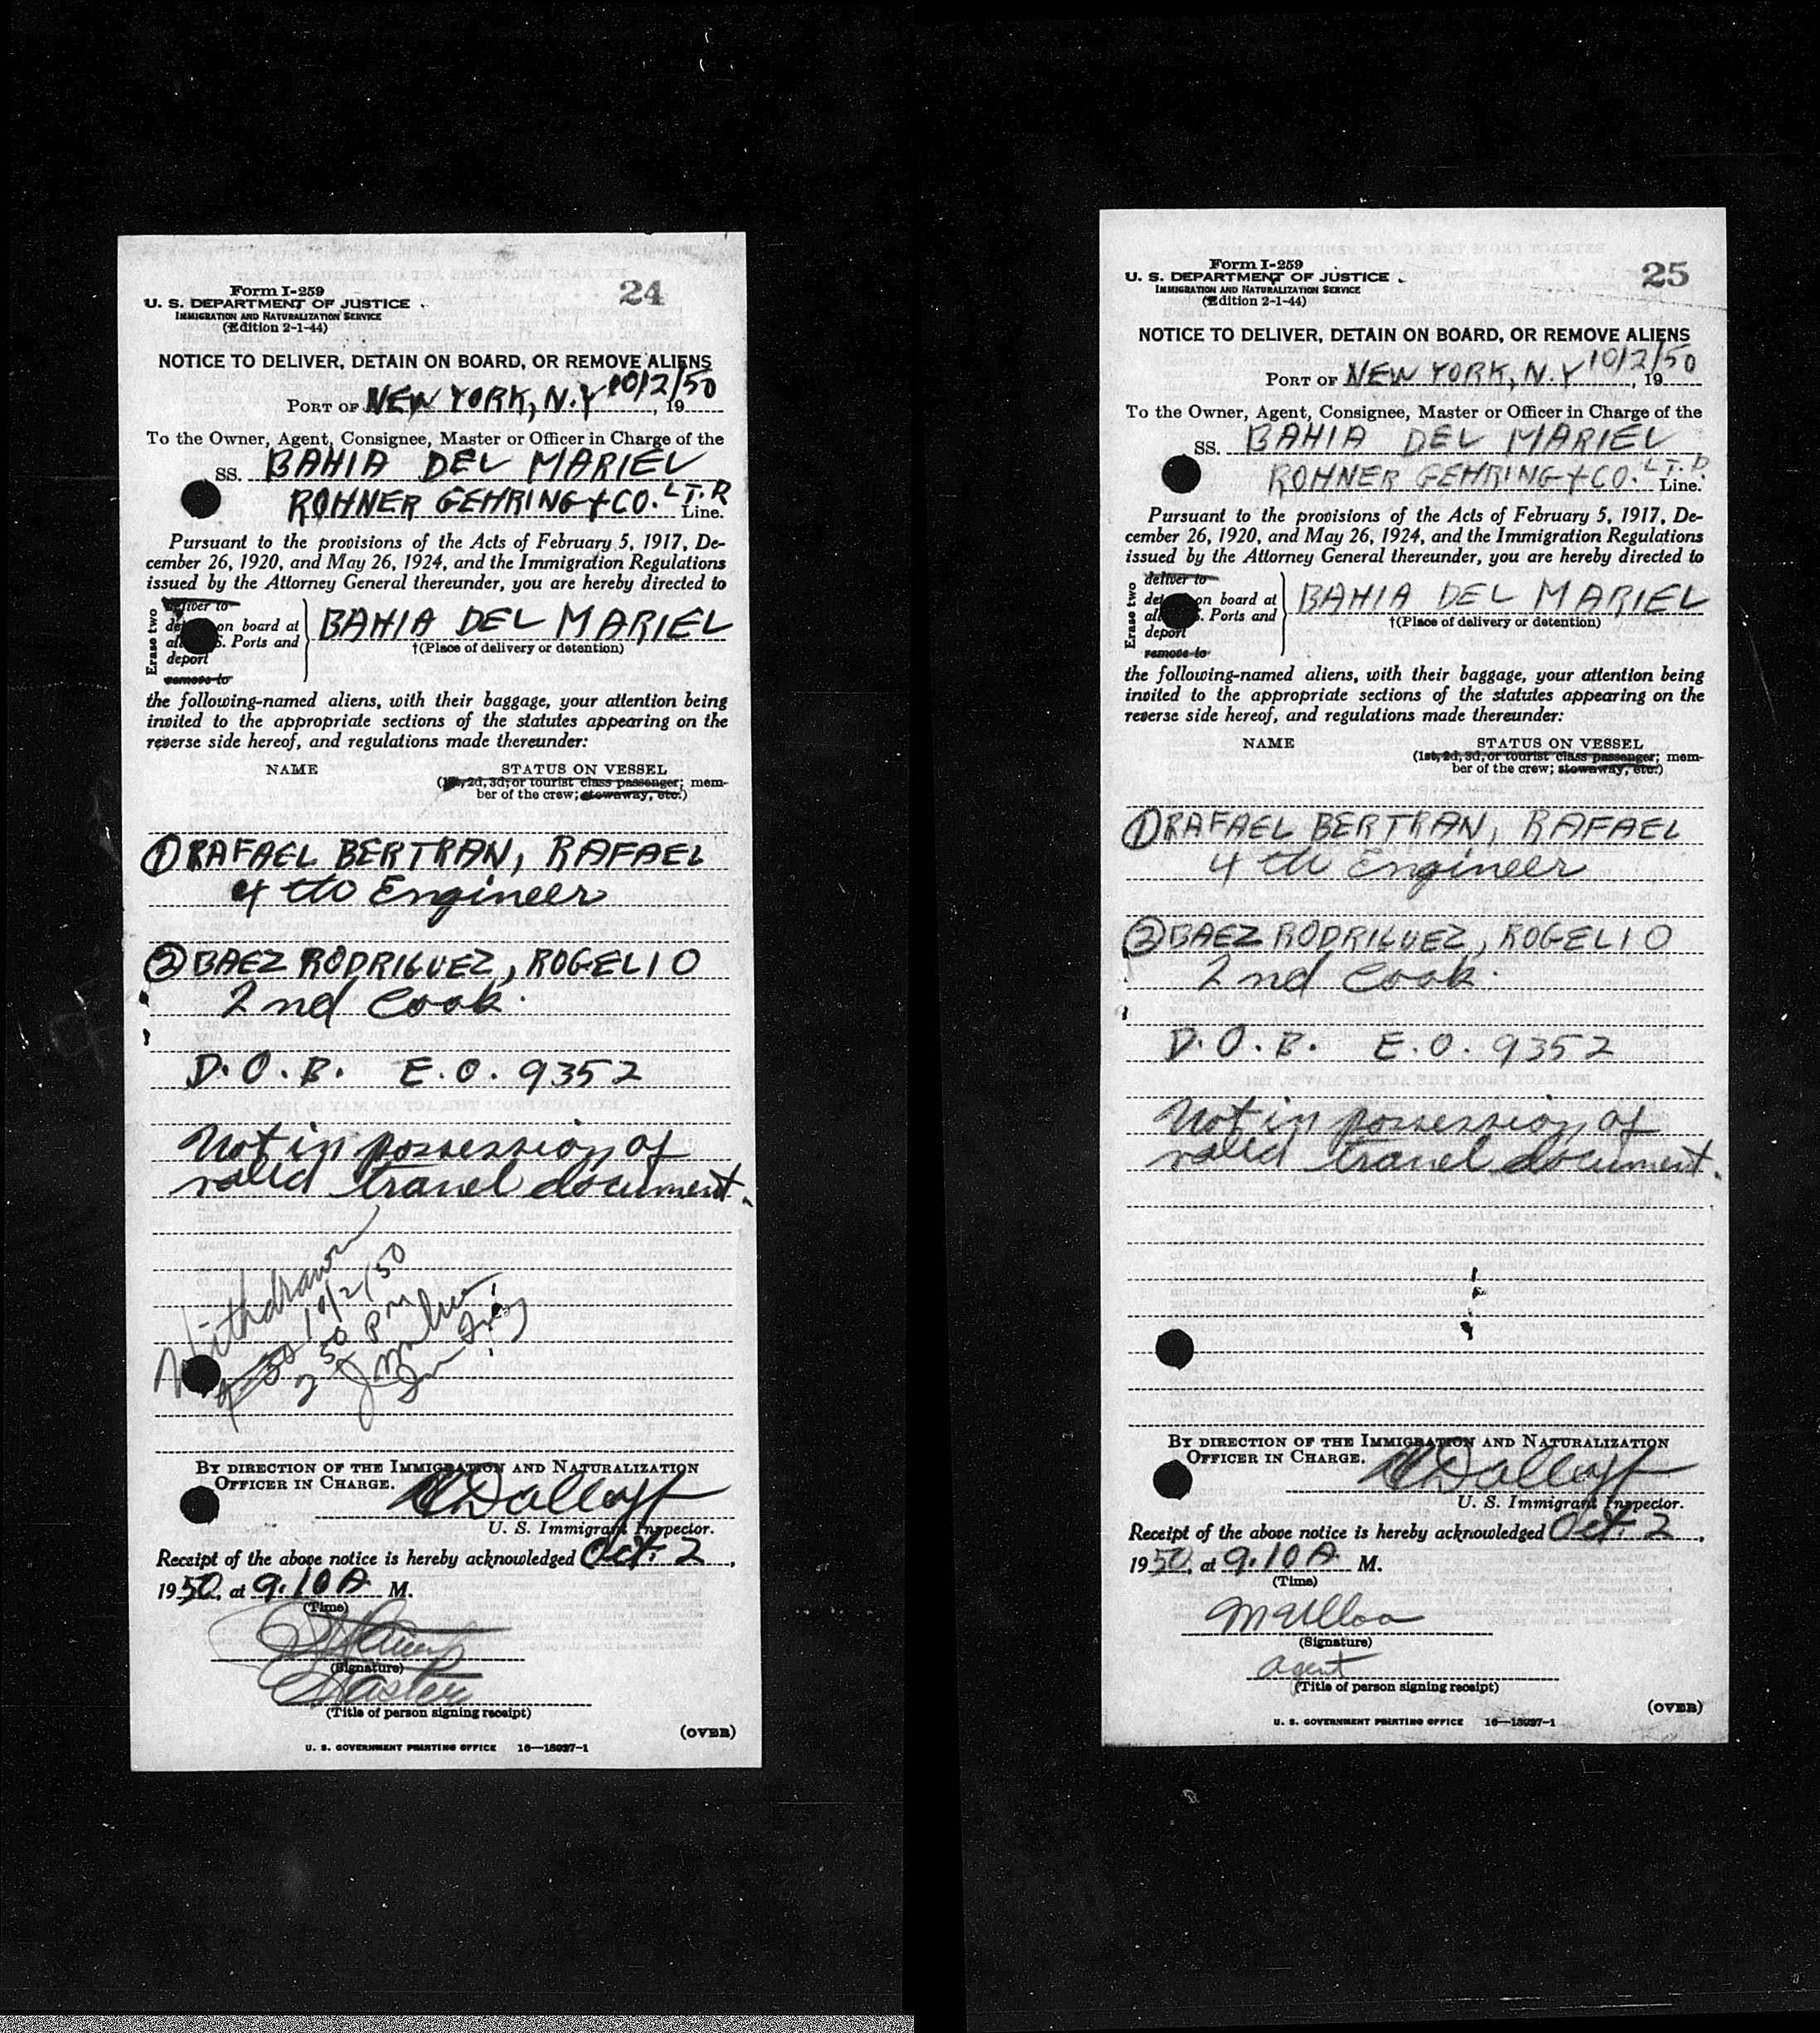 24
Form I-259
U. S. DEPARTMENT OF JUSTICE
IMMIGRATION AND NATURALIZATION SERVICE
(Edition 2-1-44)
NOTICE TO DELIVER, DETAIN ON BOARD, OR REMOVE ALIENS
PORT OF NEW YORK, N.Y 10/2/50, 19
To the Owner, Agent, Consignee, Master or Officer in Charge of the
SS. BAHIA DEL MARIEL
ROHNER GEHRING & CO. LTD Line.
Pursuant to the provisions of the Acts of February 5, 1917, De-
cember 26, 1920, and May 26, 1924, and the Immigration Regulations
issued by the Attorney General thereunder, you are hereby directed to
Erase two
deliver to
on board at
Ports and
deport
remove to
BAHIA DEL MARIEL
†(Place of delivery or detention)
the following-named aliens, with their baggage, your attention being
invited to the appropriate sections of the statutes appearing on the
reverse side hereof, and regulations made thereunder:
NAME STATUS ON VESSEL
(1st, 2d, 3d, or tourist class passenger; mem-
ber of the crew; stowaway, etc.)
① RAFAEL BERTRAN, RAFAEL
4 th Engineer
② BAEZ RODRIGUEZ, ROGELIO
2nd Cook.
D.O.B. E.O. 9352
Not in possession of
valid travel document.
Withdrawn
10/2/50
2 50 PM
BY DIRECTION OF THE IMMIGRATION AND NATURALIZATION
OFFICER IN CHARGE.
U. S. Immigrant Inspector.
Receipt of the above notice is hereby acknowledged Oct. 2,
1950, at 9.10 A M.
(Time)
(Signature)
Master
(Title of person signing receipt)
(OVER)
U. S. GOVERNMENT PRINTING OFFICE 16—18027-1
25
Form I-259
U. S. DEPARTMENT OF JUSTICE
IMMIGRATION AND NATURALIZATION SERVICE
(Edition 2-1-44)
NOTICE TO DELIVER, DETAIN ON BOARD, OR REMOVE ALIENS
PORT OF NEW YORK, N.Y 10/2/50, 19
To the Owner, Agent, Consignee, Master or Officer in Charge of the
SS. BAHIA DEL MARIEL
ROHNER GEHRING & CO. LTD Line.
Pursuant to the provisions of the Acts of February 5, 1917, De-
cember 26, 1920, and May 26, 1924, and the Immigration Regulations
issued by the Attorney General thereunder, you are hereby directed to
Erase two
deliver to
on board at
Ports and
deport
remove to
BAHIA DEL MARIEL
†(Place of delivery or detention)
the following-named aliens, with their baggage, your attention being
invited to the appropriate sections of the statutes appearing on the
reverse side hereof, and regulations made thereunder:
NAME STATUS ON VESSEL
(1st, 2d, 3d, or tourist class passenger; mem-
ber of the crew; stowaway, etc.)
① RAFAEL BERTRAN, RAFAEL
4 th Engineer
② BAEZ RODRIGUEZ, ROGELIO
2nd Cook.
D.O.B. E.O. 9352
Not in possession of
valid travel document.
BY DIRECTION OF THE IMMIGRATION AND NATURALIZATION
OFFICER IN CHARGE.
U. S. Immigrant Inspector.
Receipt of the above notice is hereby acknowledged Oct. 2,
1950, at 9.10 A M.
(Time)
M Ulloa
(Signature)
agent
(Title of person signing receipt)
(OVER)
U. S. GOVERNMENT PRINTING OFFICE 16—18027-1